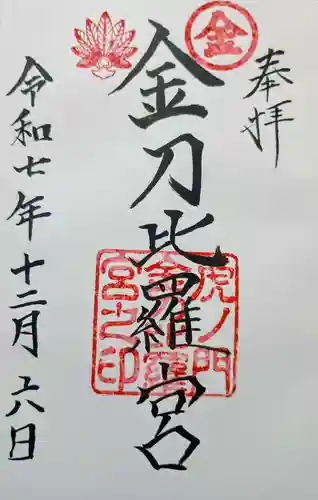 奉拝
金
金刀比羅宮
虎ノ門
金刀比羅
宮之印
令和七年十二月二六日